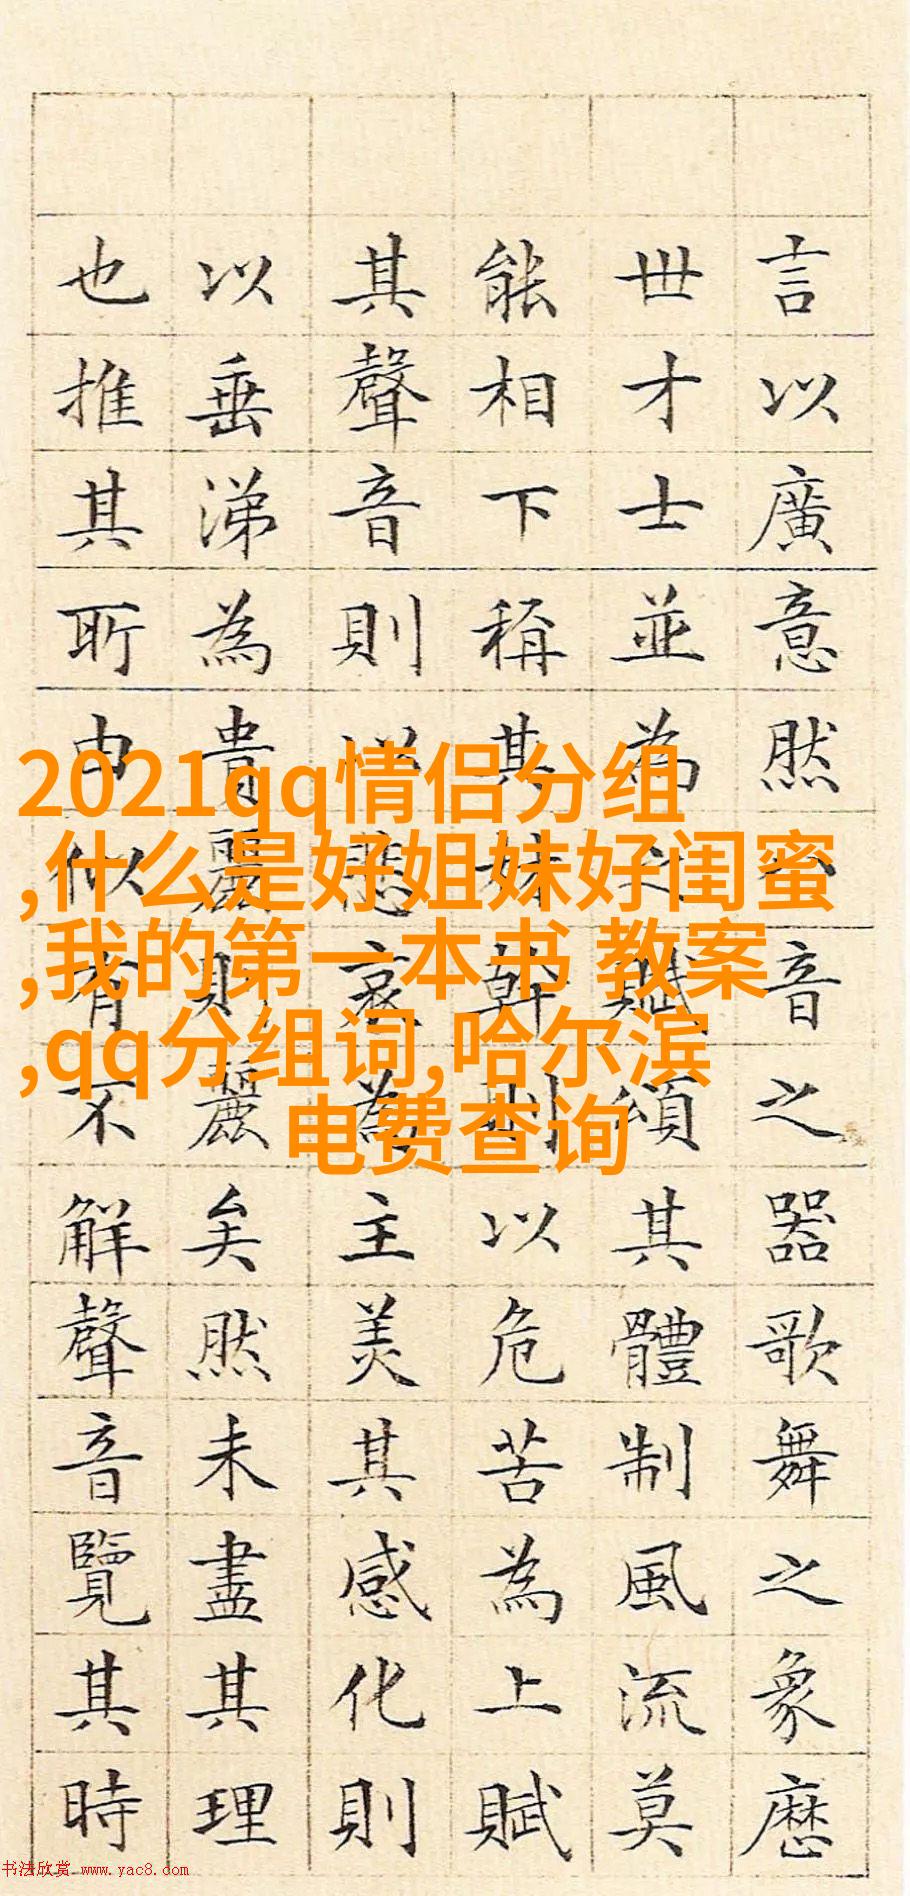 言以廣意然音之器歌舞之象歷
世才士並為之賦頌其體制風流莫
能相下稱其材幹則以危苦為上賦
其聲音則以悲哀為主美其感化則
以垂涕為貴麗則麗矣然未盡其理
也推其所由似有不解聲音覽其時
2021qq情侣分组
,什么是好姐妹好闺蜜
,我的第一本书 教案
,qq分组词,哈尔滨
电费查询
书法欣赏 www.yac8.com